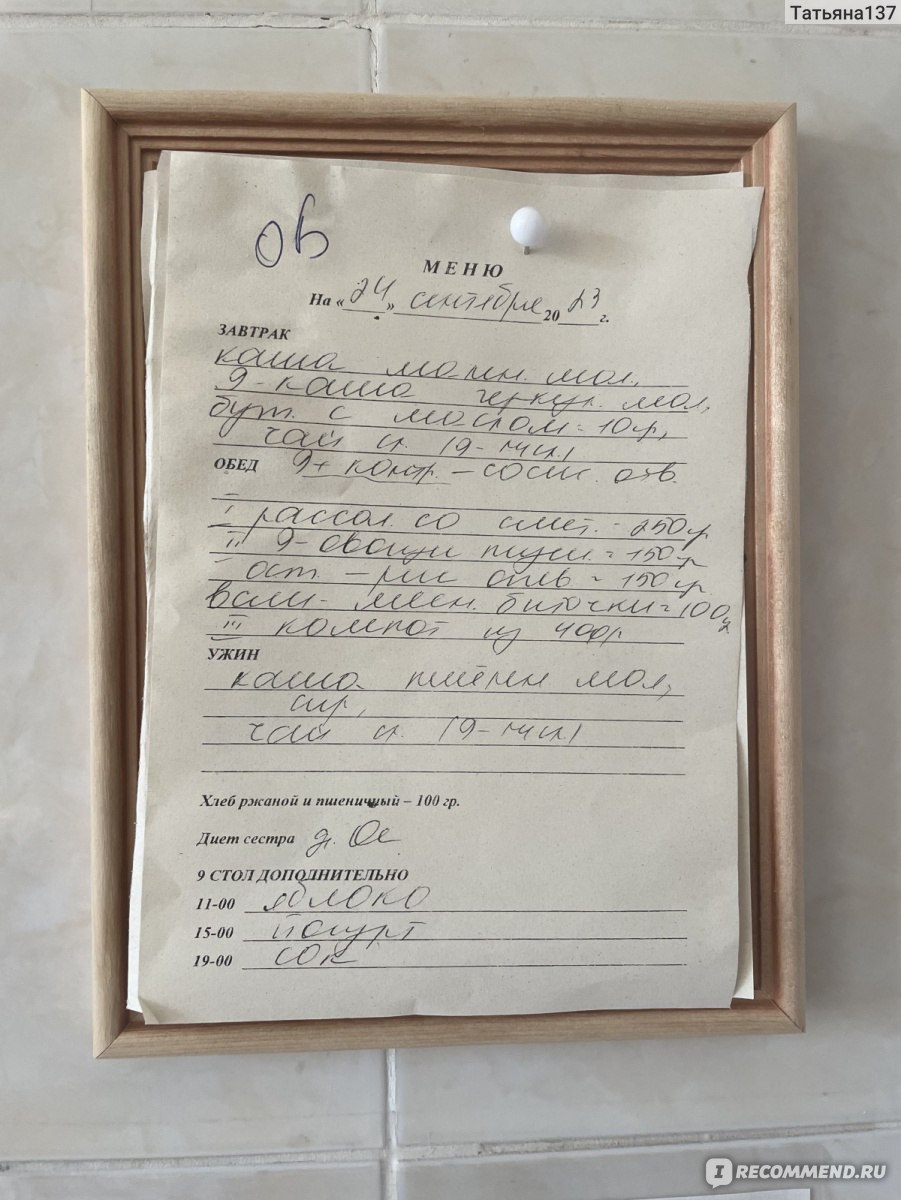 Татьяна137
ОБ
МЕНЮ
На « 24 » сентября 20 23 г.
ЗАВТРАК
каша манн. мол.,
9-каша геркул. мол,
бут. с маслом = 10гр,
чай сл.
ОБЕД 9+ контр. – соси. отв.
I рассол. со смет. - 250гр
II 9-овощи туш. = 150гр
ост. – рис отв = 150гр
всем - мясн. биточки = 100г
III компот из
УЖИН
каша пшённ. мол,
сыр,
чай сл.
Хлеб ржаной и пшеничный – 100 гр.
Диет сестра
9 СТОЛ ДОПОЛНИТЕЛЬНО
11-00 яблоко
15-00 йогурт
19-00 сок
IRECOMMEND.RU